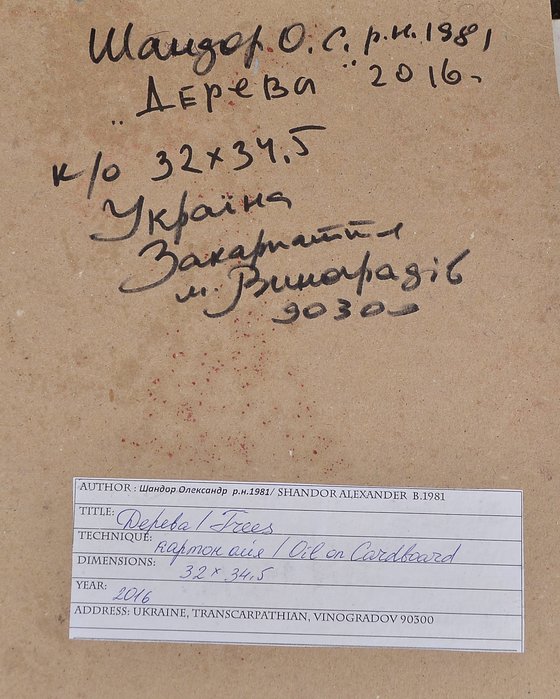 Шандор О. С. р.н. 1981
"Дерева" 2016.
к/о 32×34,5
Україна
Закарпаття
м. Виноградів
90300
AUTHOR : Шандор Олександр р.н.1981/ SHANDOR ALEXANDER B.1981
TITLE: Дерева / Trees
TECHNIQUE: картон олія / Oil on Cardboard
DIMENSIONS: 32 × 34,5
YEAR: 2016
ADDRESS: UKRAINE, TRANSCARPATHIAN, VINOGRADOV 90300